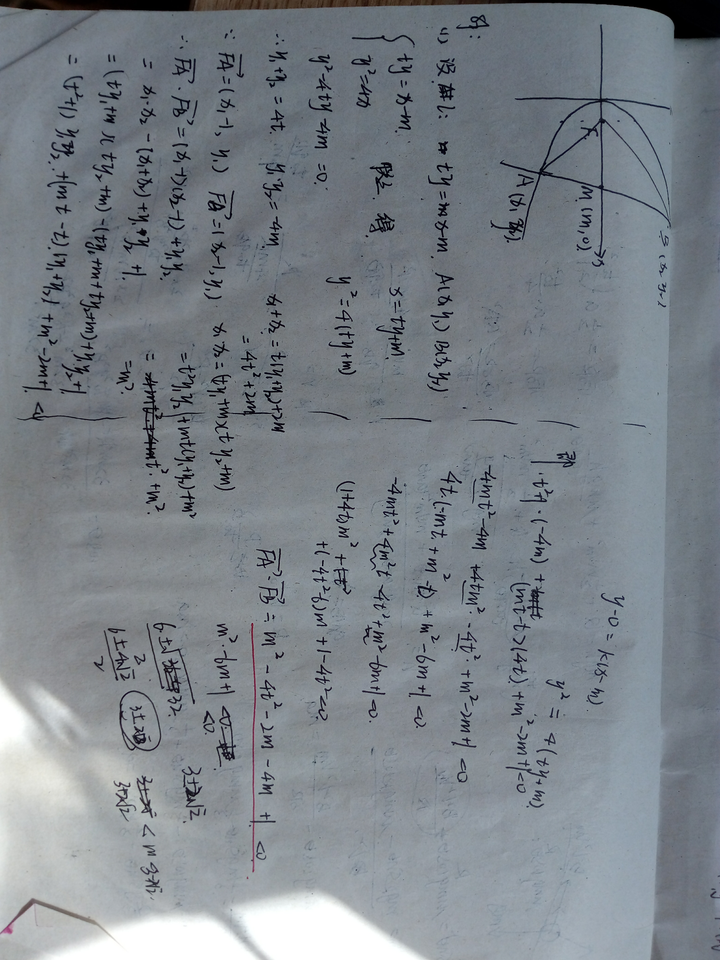 B(x₂, y₂)
F
M(m,0)
x
A(x₁, y₁)
解:
(1) 设 l: ty=x-m. A(x₁y₁) B(x₂y₂)
{ ty=x-m.
y²=4x
联立 得
x=ty+m.
y²=4(ty+m)
y²-4ty-4m=0.
∴ y₁+y₂=4t y₁·y₂=-4m.
x₁+x₂=t(y₁+y₂)+2m
=4t²+2m
∴ FA=(x₁-1, y₁) FB=(x₂-1, y₂)
x₁x₂=(ty₁+m)(ty₂+m)
=t²y₁y₂+mt(y₁+y₂)+m²
=m².
∴ FA·FB=(x₁-1)(x₂-1)+y₁y₂
=x₁·x₂-(x₁+x₂)+y₁y₂+1.
=(ty₁+m)(ty₂+m)-(ty₁+m+ty₂+m)+y₁y₂+1
=(t²+1)y₁y₂+(mt-t)(y₁+y₂)+m²-2m+1 <0
y-0=k(x-m)
y²=4(ty+m)
即 t²·(-4m)+(mt-t)(4t)+m²-2m+1=0
-4mt²-4m+4tm²-4t²+m²-2m+1=0
4t(-mt+m²-t)+m²-6m+1=0
-4mt²+4m²t-4t²+m²-6m+1=0
(1+4t)m²
+(-4t²-6)m+1-4t²=0
FA·FB=m²-4t²-2m-4m+1<0
m²-6m+1<0
6±4√2
2
3±2√2
3-2√2<m<3+2√2